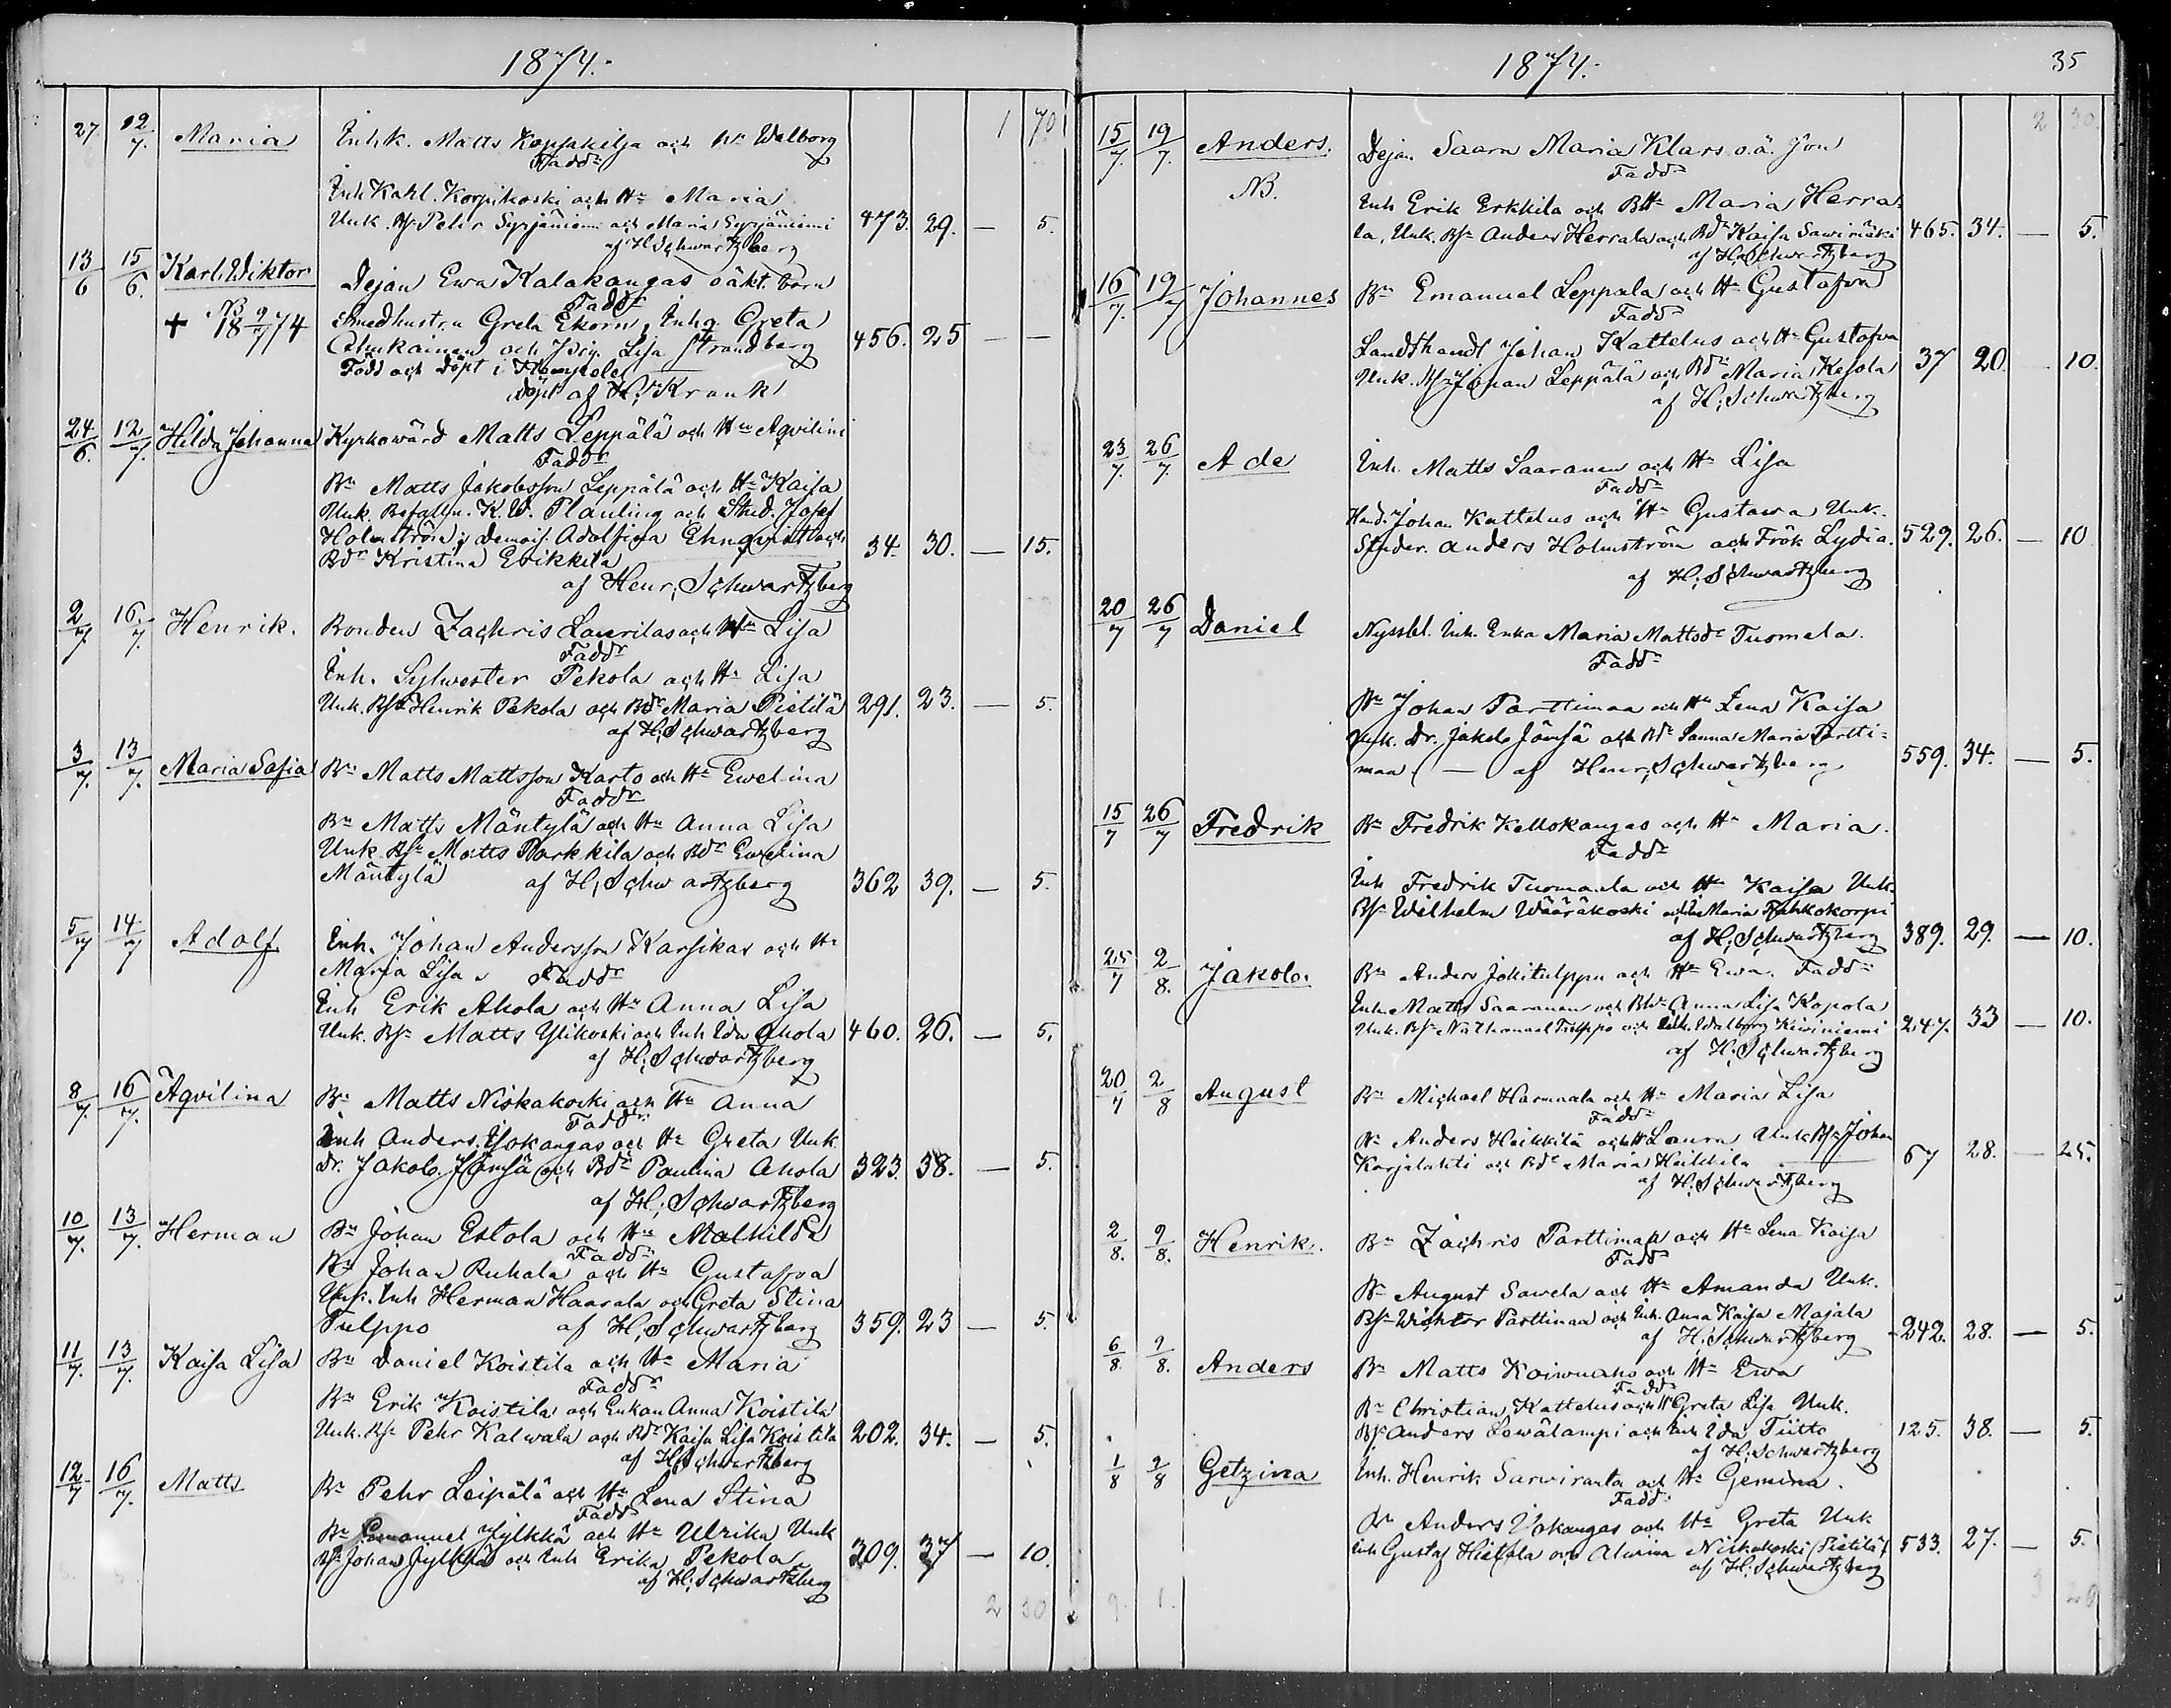 1874.
1 70
27 12/7. Maria Inhk. Matts Kopsakilja och hu Walborg
Faddr
Inh Kahl. Korpikoski och Hu Maria
Unk. Bs Pehr Syrjäniemi och Maria Syrjäniemi 473. 29. — 5.
af H. Schwartzberg
13/6 15/6. Karl Wiktor Dejan Ewa Kalakangas oäkt. barn
Faddr
+ 18 9/7 74 Smedhustrun Greta Ekorn, Inh Greta
och Pig. Lisa Strandberg 456. 25 — —
Född och döpt i
döpt af H. Krank
24/6. 12/7. Hilda Johanna Kyrkowärd Matts Leppälä och Hu Aqvilina
Faddr
Bn Matts Jakobsson Leppälä och Hu Kaisa
Unk. K. W. Planting och Stud. Josef
Holmström, Demois. Adolfina Ehnqvist och 34. 30. — 15.
Bdr Kristina Erikkila
af Henr. Schwartzberg
2/7 16/7. Henrik. Bonden Zachris Laurilas och Hu Lisa
Faddr
Inh. Sylwester Pekola och Hu Lisa
Unk. Bs Henrik Pekola och Bdr Maria Pietilä 291. 23. — 5.
af H. Schwartzberg
3/7. 13/7. Maria Sofia Bn Matts Mattsson Karto och Hu Ewelina
Faddr
Bn Matts Mäntylä och Hu Anna Lisa
Unk Bs Matts Parkkila och Bdr Ewelina
Mäntylä af H. Schwartzberg 362 39. — 5.
5/7 14/7 Adolf Inh. Johan Andersson Karsikas och Hu
Maria Lisa. Faddr
Inh Erik Ahola och Hu Anna Lisa
Unk. Bs Matts Ylikoski och Inh Ida Ahola 460. 26. — 5.
af H. Schwartzberg
8/7. 16/7. Aqvilina Bn Matts Niskakoski och Hu Anna
Faddr
Inh Anders Isokangas och Hu Greta Unk.
Dr. Jakob Jämsä och Bdr Paulina Ahola 323. 38. — 5.
af H. Schwartzberg
10/7. 13/7. Herman Bn Johan Estola och Hu Mathilda
Faddr
Bn Johan Ruhala och Hu Gustafva
Unk. Inh Herman Haarala och Greta Stina
Tulppo af H. Schwartzberg 359. 23 — 5.
11/7. 13/7. Kaisa Lisa Bn Daniel Koistila och Hu Maria
Faddr
Bn Erik Koistila och Enkan Anna Koistila
Unk. Bs Pehr Kalwala och Bdr Kaisa Lisa Koistila 202. 34. — 5.
af H. Schwartzberg
12/7 16/7. Matts Bn Pehr Leipälä och Hu Lena Stina
Fadd
Bn Emanuel Jylkkä och Hu Ulrika Unk
Bs Johan Jylkkä och Inh Erika Pekola 309. 37 — 10.
af H. Schwartzberg
2 30
1874.
35
2 30.
15/7. 19/7. Anders. Dejan Saara Maria Klars o.ä. Son
Fadd
NB. Inh Erik Erkkila och BHu Maria Herra-
la, Unk. Bs Anders Herrala och Bdr Kaisa Sawimäki 465. 34. — 5.
af H. Schwartzberg
16/7. 19/7 Johannes Bn Emanuel Leppala och Hu Gustafva
Fadd
Landthandl Johan Kattelus och Hu Gustafva
Unk. Bs Johan Leppälä och Bdr Maria Kesola 37 20. 10.
af H. Schwartzberg
23/7. 26/7. Ade Inh. Matts Saaranen och Hu Lisa
Fadd
Hand. Johan Kattelus och Hu Gustawa Unk.
Studer. Anders Holmström och Frök Lydia. 529. 26. — 10
af H. Schwartzberg
20/7 26/7 Daniel Nyssbl. Inh. Enka Maria Mattsdr Tuomela.
Fadd
Bn Johan Parttimaa och Hu Lena Kaisa
Unk. Dr. Jakob Jämsä och Bdr Sanna Maria Partti-
maa — af Henr. Schwartzberg 559. 34. — 5.
15/7 26/7 Fredrik Bn Fredrik Kellokangas och Hu Maria.
Fadd
Inh Fredrik Tuomaala och Hu Kaisa Unk.
Bs Wilhelm Wääräkoski och Maria Pahkokorpi
af H. Schwartzberg 389. 29. — 10.
25/7 2/8. Jakob. Bn Anders Jokitulppu och Hu Ewa. Fadd
Inh Matts Saaranen och Bdr Anna Lisa Kopola
Unk. Bs Nathanael Tulppo och Inh. Walborg Kiwiniemi 247. 33 — 10.
af H. Schwartzberg
20/7 2/8 August Bn Michael Harmaala och Hu Maria Lisa
Fadd
Bn Anders Heikkilä och H Laura Unk Bs Johan
Karjalahti och Bdr Maria Heikkila 67 28. — 25.
af H. Schwartzberg
2/8. 9/8. Henrik. Bn Zachris Parttimaa och Hu Lena Kaisa
Fadd
Bn August Sawela och Hu Amanda Unk.
Bs Wichtor Parttimaa och Inh. Anna Kaisa Majala
af H. Schwartzberg 242. 28. — 5.
6/8. 9/8. Anders Bn Matts Koiwuaho och Hu Ewa
Fadd
Bn Christian Kattelus och H Greta Lisa Unk.
Bs Anders Lewälampi och Inh Ida Tiitto 125. 38. — 5.
af H. Schwartzberg
1/8 9/8 Getzina Inh. Henrik Sarwiranta och Hu Gemina.
Fadd
Bn Anders Isokangas och Hu Greta Unk
Inh Gustaf Hietala och Alwina Niskakoski (Pietilä) 533. 27. — 5.
af H. Schwartzberg
9. 1. 3 20